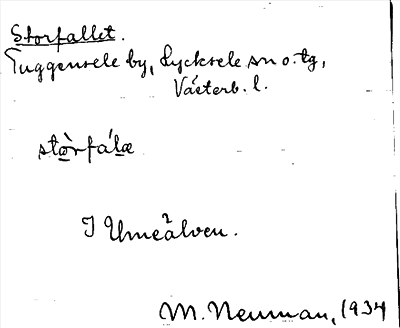 Storfallet.
Tuggensele by, Lycksele sn o. tg,
Västerb. l.
stòrfálæ
I Umeälven.
M. Neuman, 1934